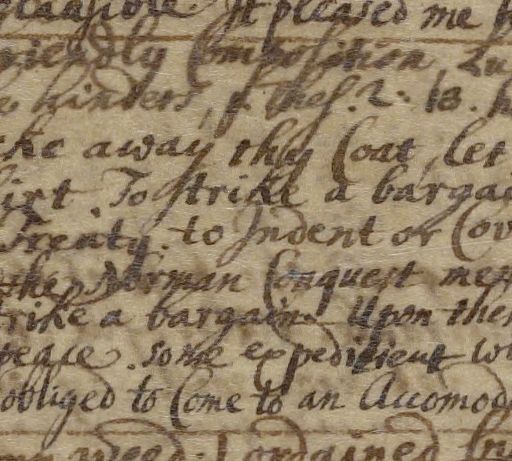 pleasible. It pleased me
friendly Composition
hinders, 1 Thes. 2. 18.
away thy Coat, let
To strike a bargai
Treaty. to Indent or Cov
the Norman Conquest men
trike a bargain. Upon the
peace. some expedient wo
obliged to Come to an Accomod
agreed. I ordained